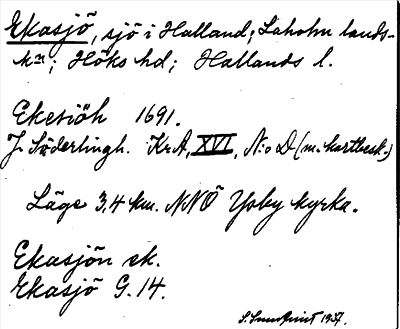 Ekasjö, sjö i Halland; Laholm lands-
km; Höks hd; Hallands l.
Ekesiöh 1691.
J. Söderlingh. KrA, XVI, N:o D (m. kartbeskr.)
Läge 3,4 km. NNÖ Ysby kyrka.
Ekasjön ek.
Ekasjö G. 14.
1937.